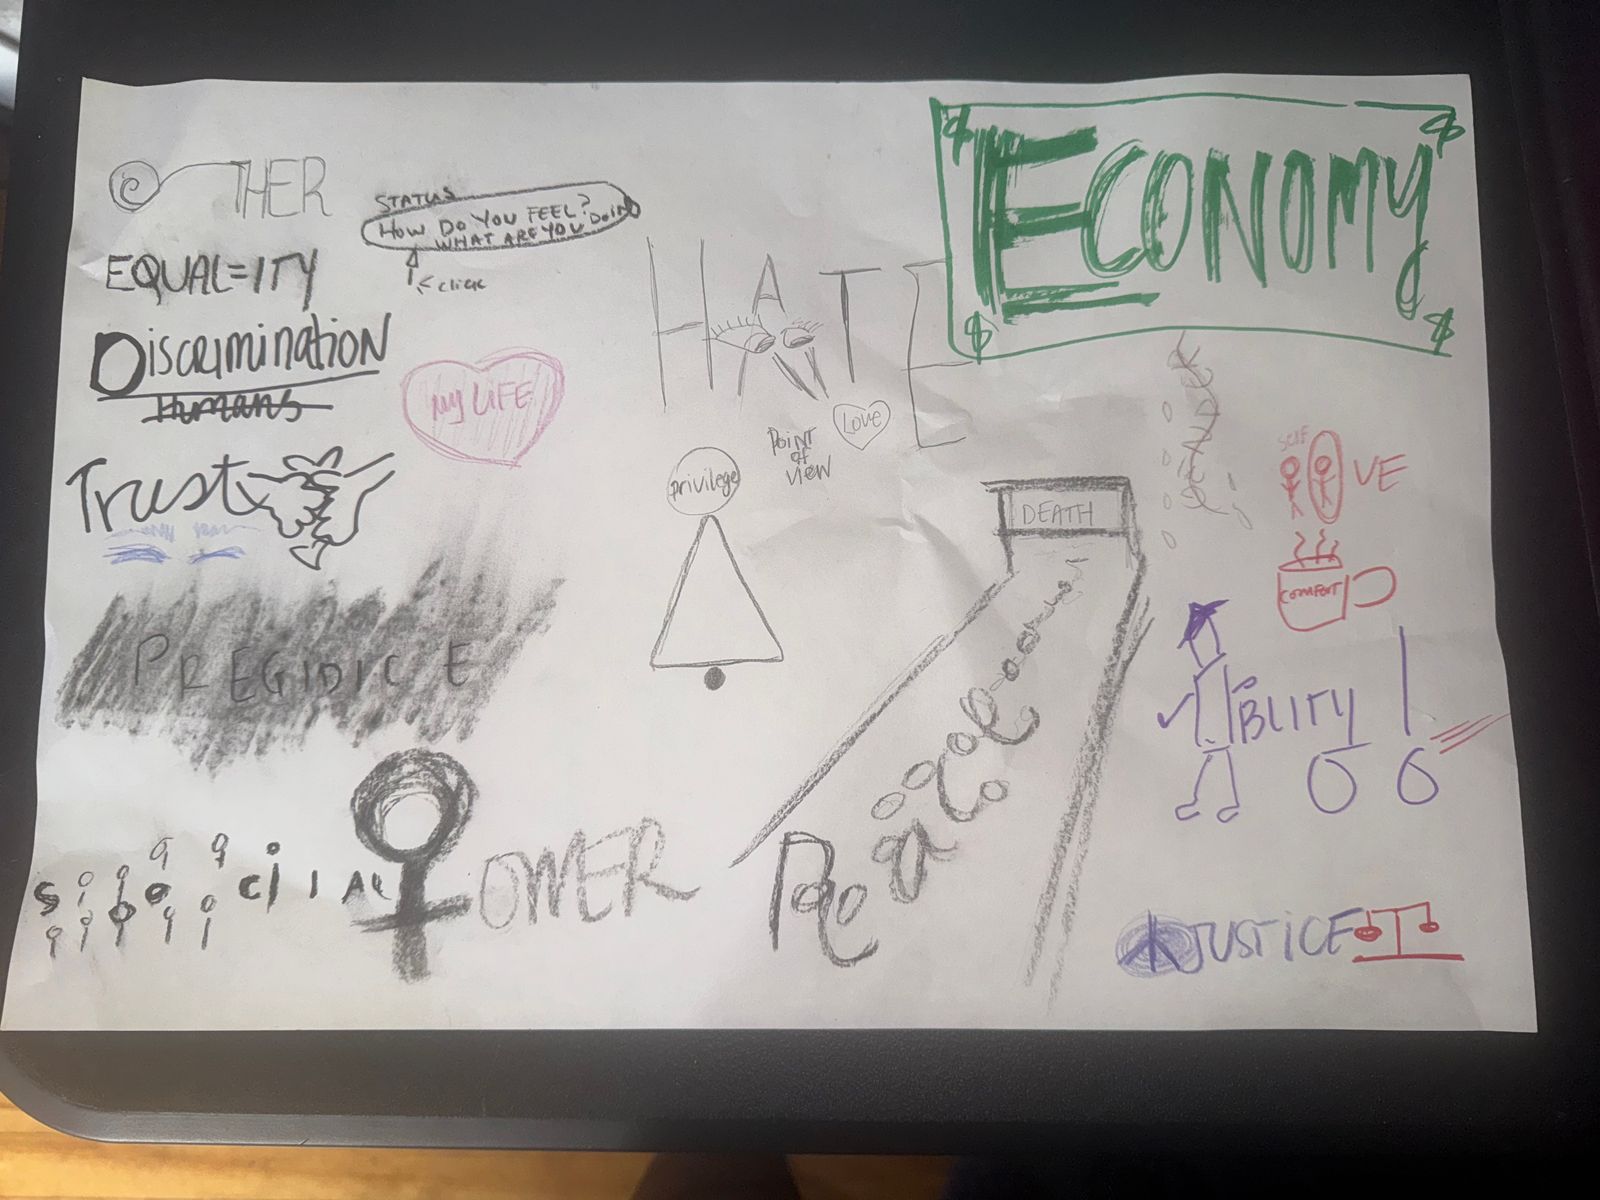 OTHER
STATUS
HOW DO YOU FEEL?
WHAT ARE YOU DOING
click
EQUAL=ITY
DISCRIMINATION
Humans
MY LIFE
Trust
PREGIDICE
SOCIAL
POWER
HATE
LOVE
POINT
OF
VIEW
privilege
$ $
ECONOMY
$ $
GENDER
DEATH
SELF
VE
COMFORT
BLITY
JUSTICE